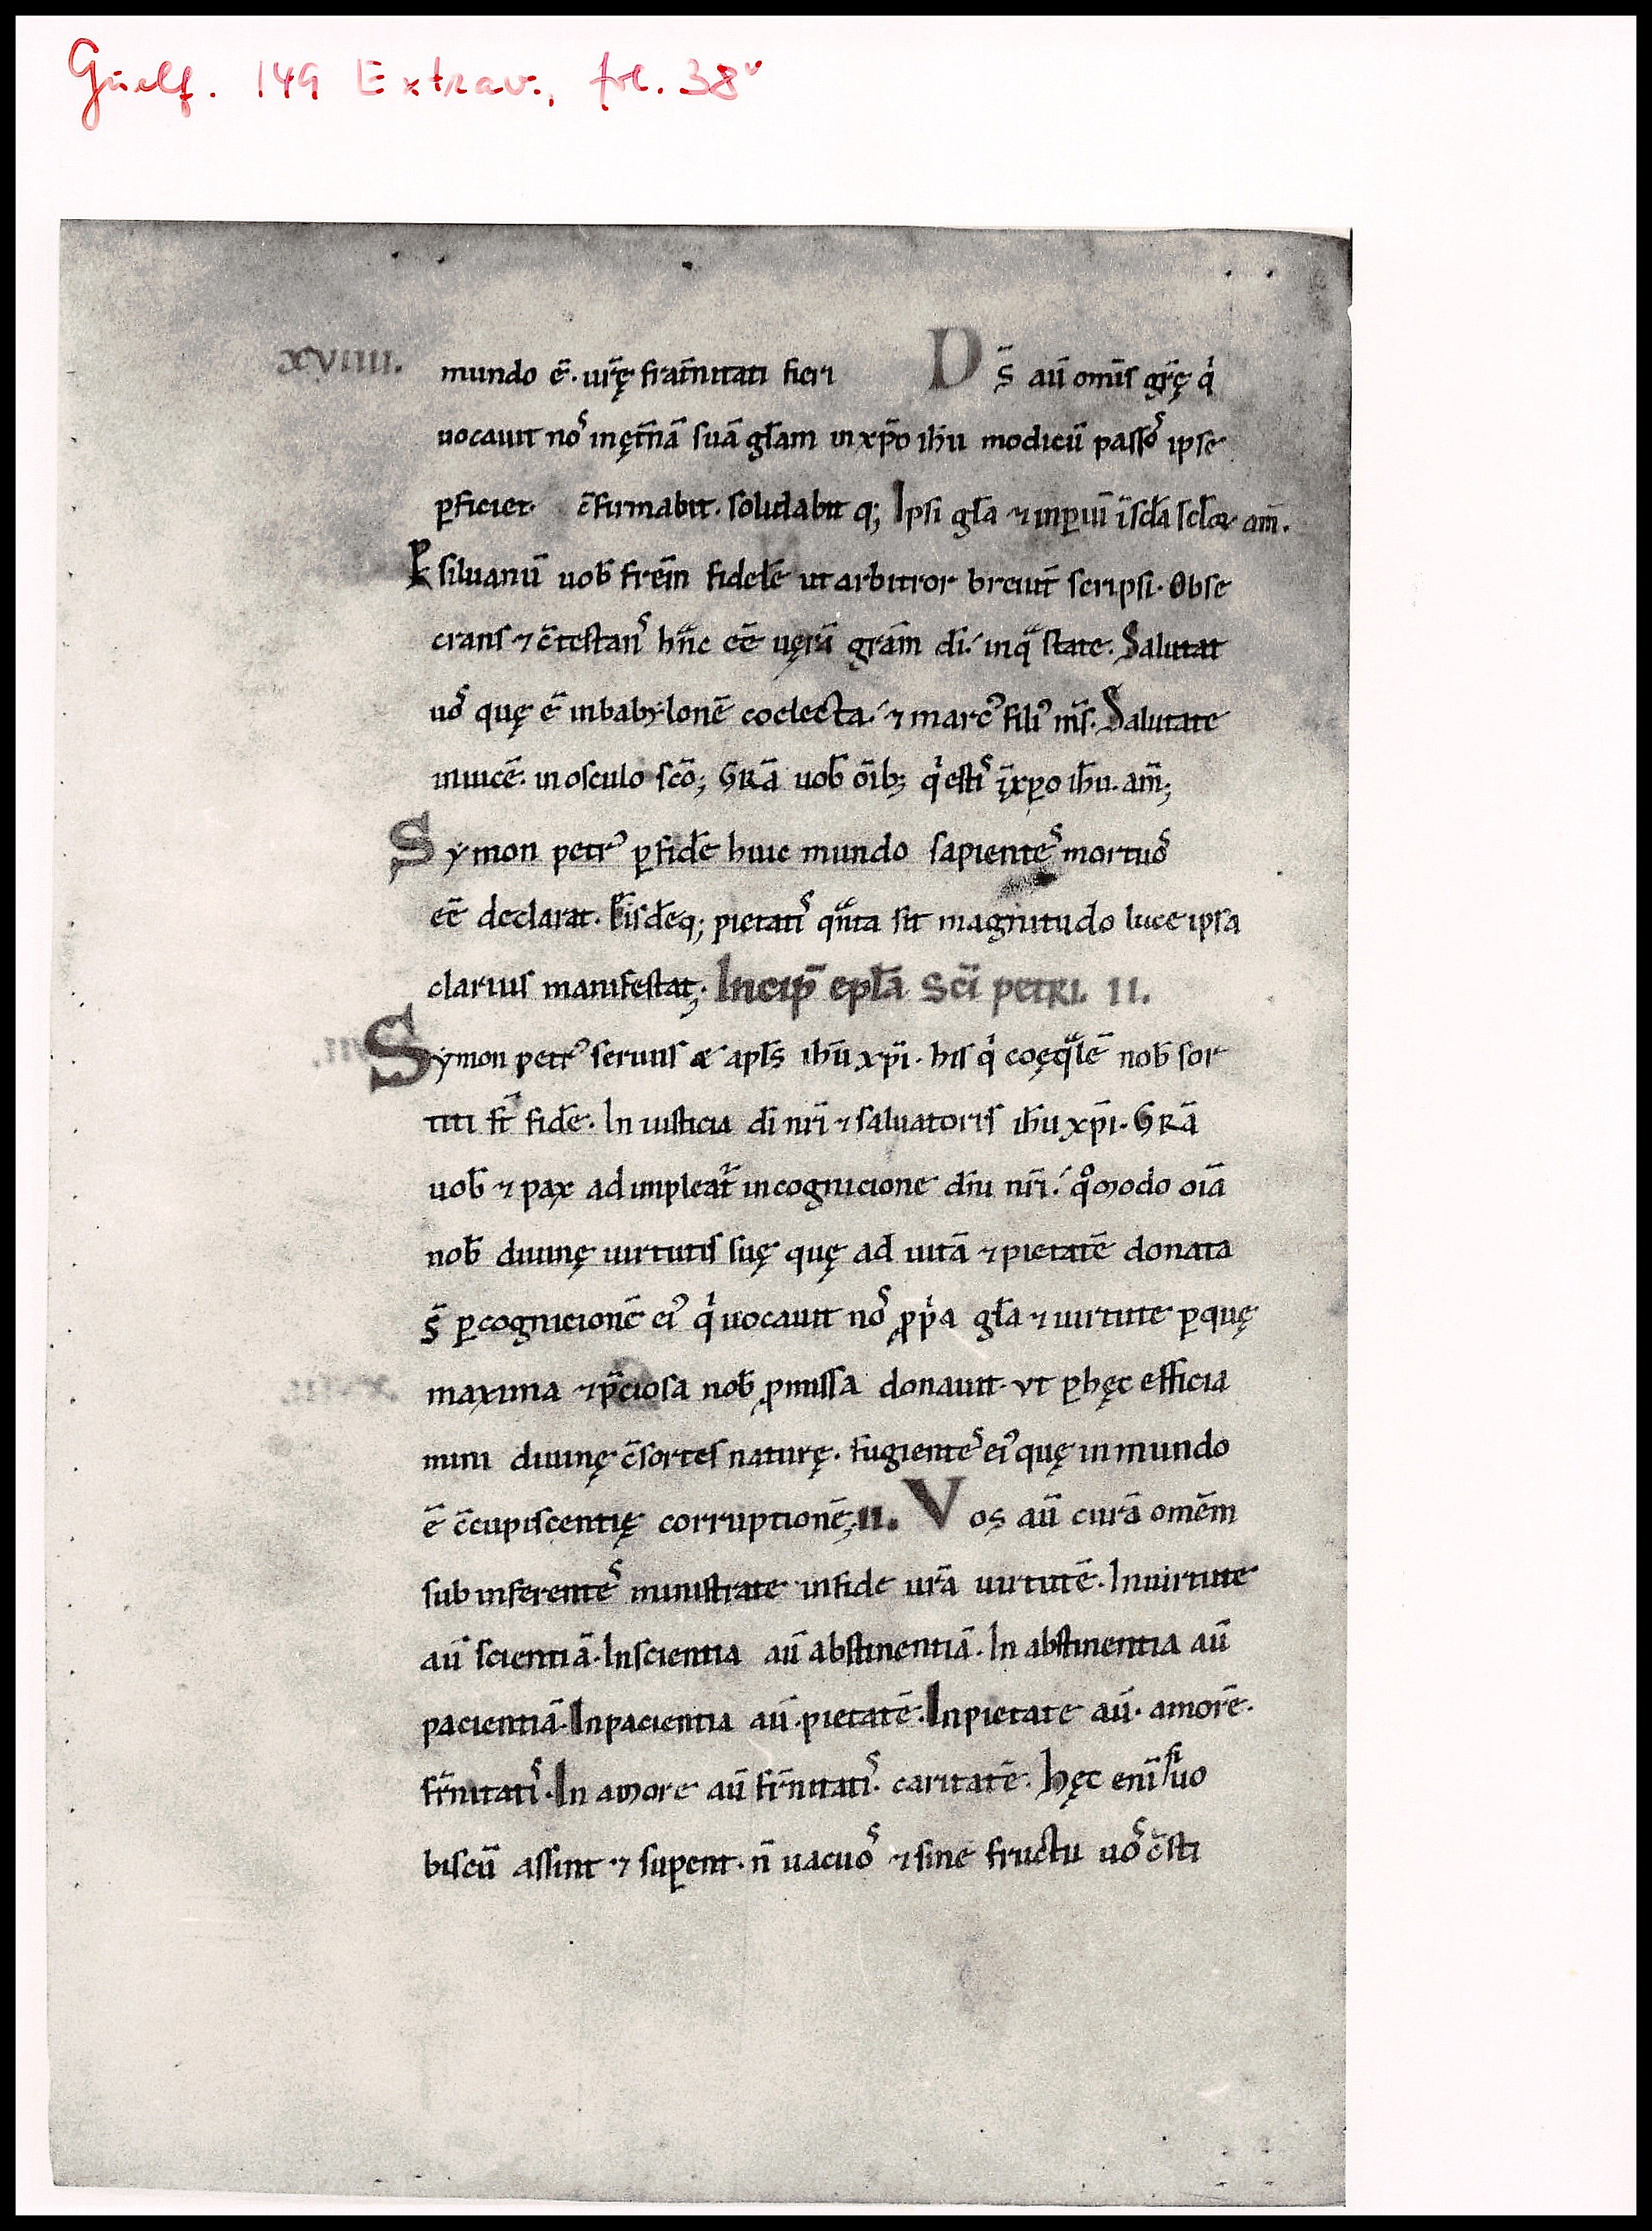 Guelf. 149 Extrav., fol. 38v
XVIIII. mundo ē. ur̄ę frat̄nitati fieri D s̄ aū om̄is gr̄ę qi
uocauit noˢ inęt̄nā suā gl̄am in xp̄o ih̄u modicū passoˢ ipse
ꝑficiet. c̄firmabit. solidabit q; Ipsi gl̄a ⁊ inꝑiū ı̄scl̄a scl̄oꝝ am̄.
Ꝑ siluanū uob̄ fr̄em fidelē ut arbitror breuit̄ scripsi. Obse
crans ⁊ c̄testanˢ hᵃnc eē uęrā grām dı̄. inqᵃ state. Salutat
uoˢ quę ē inbabylonē coelecta. ⁊ marcꝰ filiꝰ m̄s. Salutate
inuicē. in osculo scō; GRā uob̄ oīb; qi estiˢ ı̄xp̄o ih̄u. am̄;
Symon petrꝰ ꝑfidē huic mundo sapienteˢ mortuoˢ
eē declarat. Eisdēq; pietatiˢ qᵃnta sit magnitudo luce ipsa
clarius manifestat; Incip̄ epl̄a Scı̄ petri. II.
Symon petrꝰ seruus æ apl̄s ih̄u xp̄i. his qi coęqᵃlē nob̄ sor
titi st̄ fidē. In iusticia dı̄ nr̄i ⁊ saluatoris ih̄u xp̄i. GRā
uob̄ ⁊ pax adimpleat̄ incognicione dn̄i nr̄i. qºmodo oı̄a
nob̄ diuinę uirtutis suę quę ad uitā ⁊ pietatē donata
s̄ ꝑcognicionē eiꝰ qi uocauit noˢ ꝓpia gl̄a ⁊ uirtute ꝑquę
maxima ⁊ p̄ciosa nob̄ ꝓmissa donauit. vt ꝑhęc efficia
mini diuinę c̄sortes naturę. fugienteˢ eiꝰ quę in mundo
ē c̄cupiscentię corruptionē; II. Vos aū curā omēm
sub inferenteˢ ministrate infide ur̄ā uirtutē. Inuirtute
aū scientiā. Inscientia aū abstinentiā. In abstinentia aū
pacientiā. Inpacientia aū. pietatē. Inpietate aū. amorē.
fr̄nitatiˢ. In amore aū fr̄nitatiˢ. caritatē. Hęc enı̄ si uo
biscū assint ⁊ suꝑent. n̄ uacuoˢ ⁊ sine fructu uoˢ c̄sti